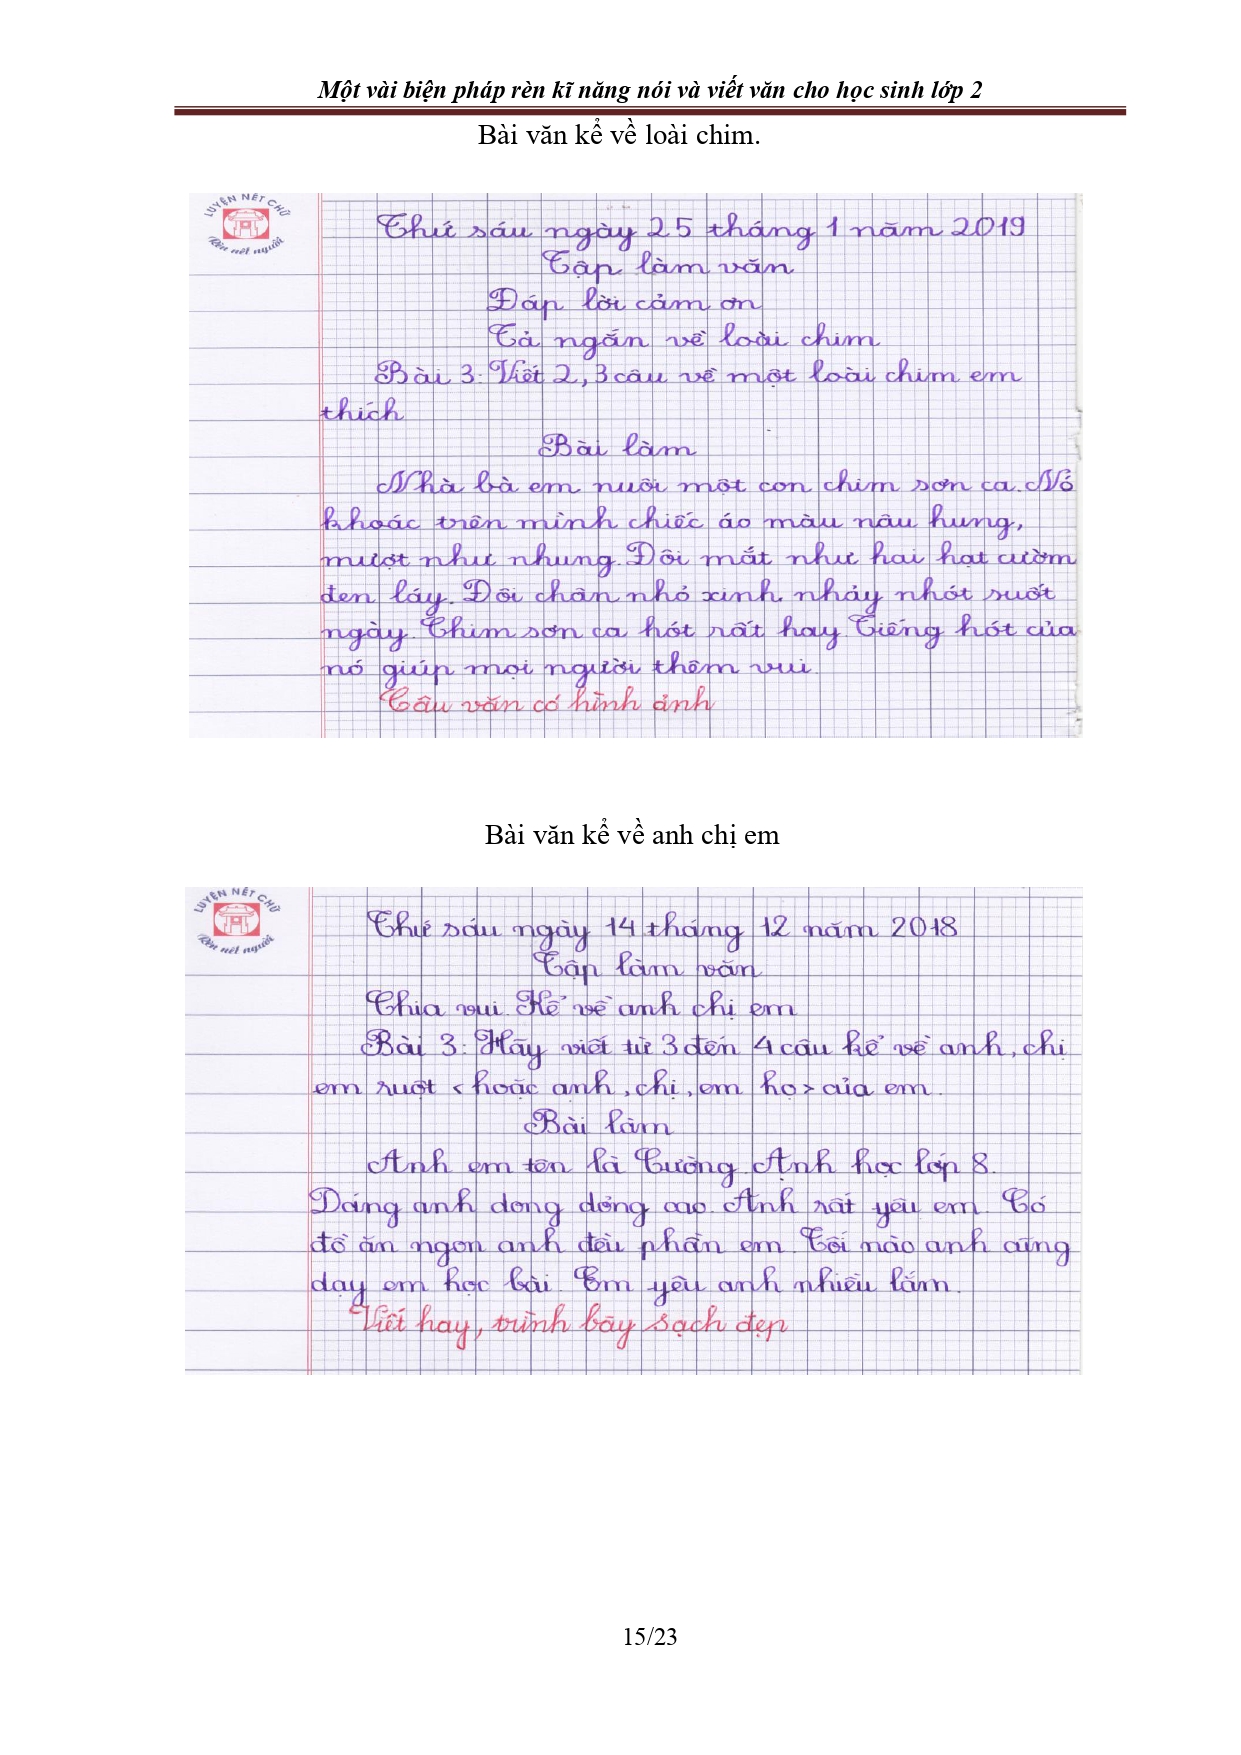 Một vài biện pháp rèn kĩ năng nói và viết văn cho học sinh lớp 2
Bài văn kể về loài chim.
LUYỆN NÉT CHỮ
Rèn nết người
Thứ sáu ngày 25 tháng 1 năm 2019
Tập làm văn
Đáp lời cảm ơn
Tả ngắn về loài chim
Bài 3: Viết 2, 3 câu về một loài chim em
thích
Bài làm
Nhà bà em nuôi một con chim sơn ca. Nó
khoác trên mình chiếc áo màu nâu hung,
mượt như nhung. Đôi mắt như hai hạt cườm
đen láy. Đôi chân nhỏ xinh nhảy nhót suốt
ngày. Chim sơn ca hót rất hay. Tiếng hót của
nó giúp mọi người thêm vui.
Câu văn có hình ảnh
Bài văn kể về anh chị em
LUYỆN NÉT CHỮ
Rèn nết người
Thứ sáu ngày 14 tháng 12 năm 2018
Tập làm văn
Chia vui. Kể về anh chị em
Bài 3: Hãy viết từ 3 đến 4 câu kể về anh, chị
em ruột < hoặc anh, chị, em họ > của em.
Bài làm
Anh em tên là Cường. Anh học lớp 8.
Dáng anh dong dỏng cao. Anh rất yêu em. Có
đồ ăn ngon anh đều phần em. Tối nào anh cũng
dạy em học bài. Em yêu anh nhiều lắm.
Viết hay, trình bày sạch đẹp
15/23